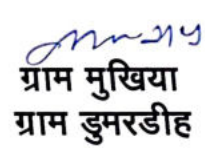 ग्राम मुखिया
ग्राम डुमरडीह